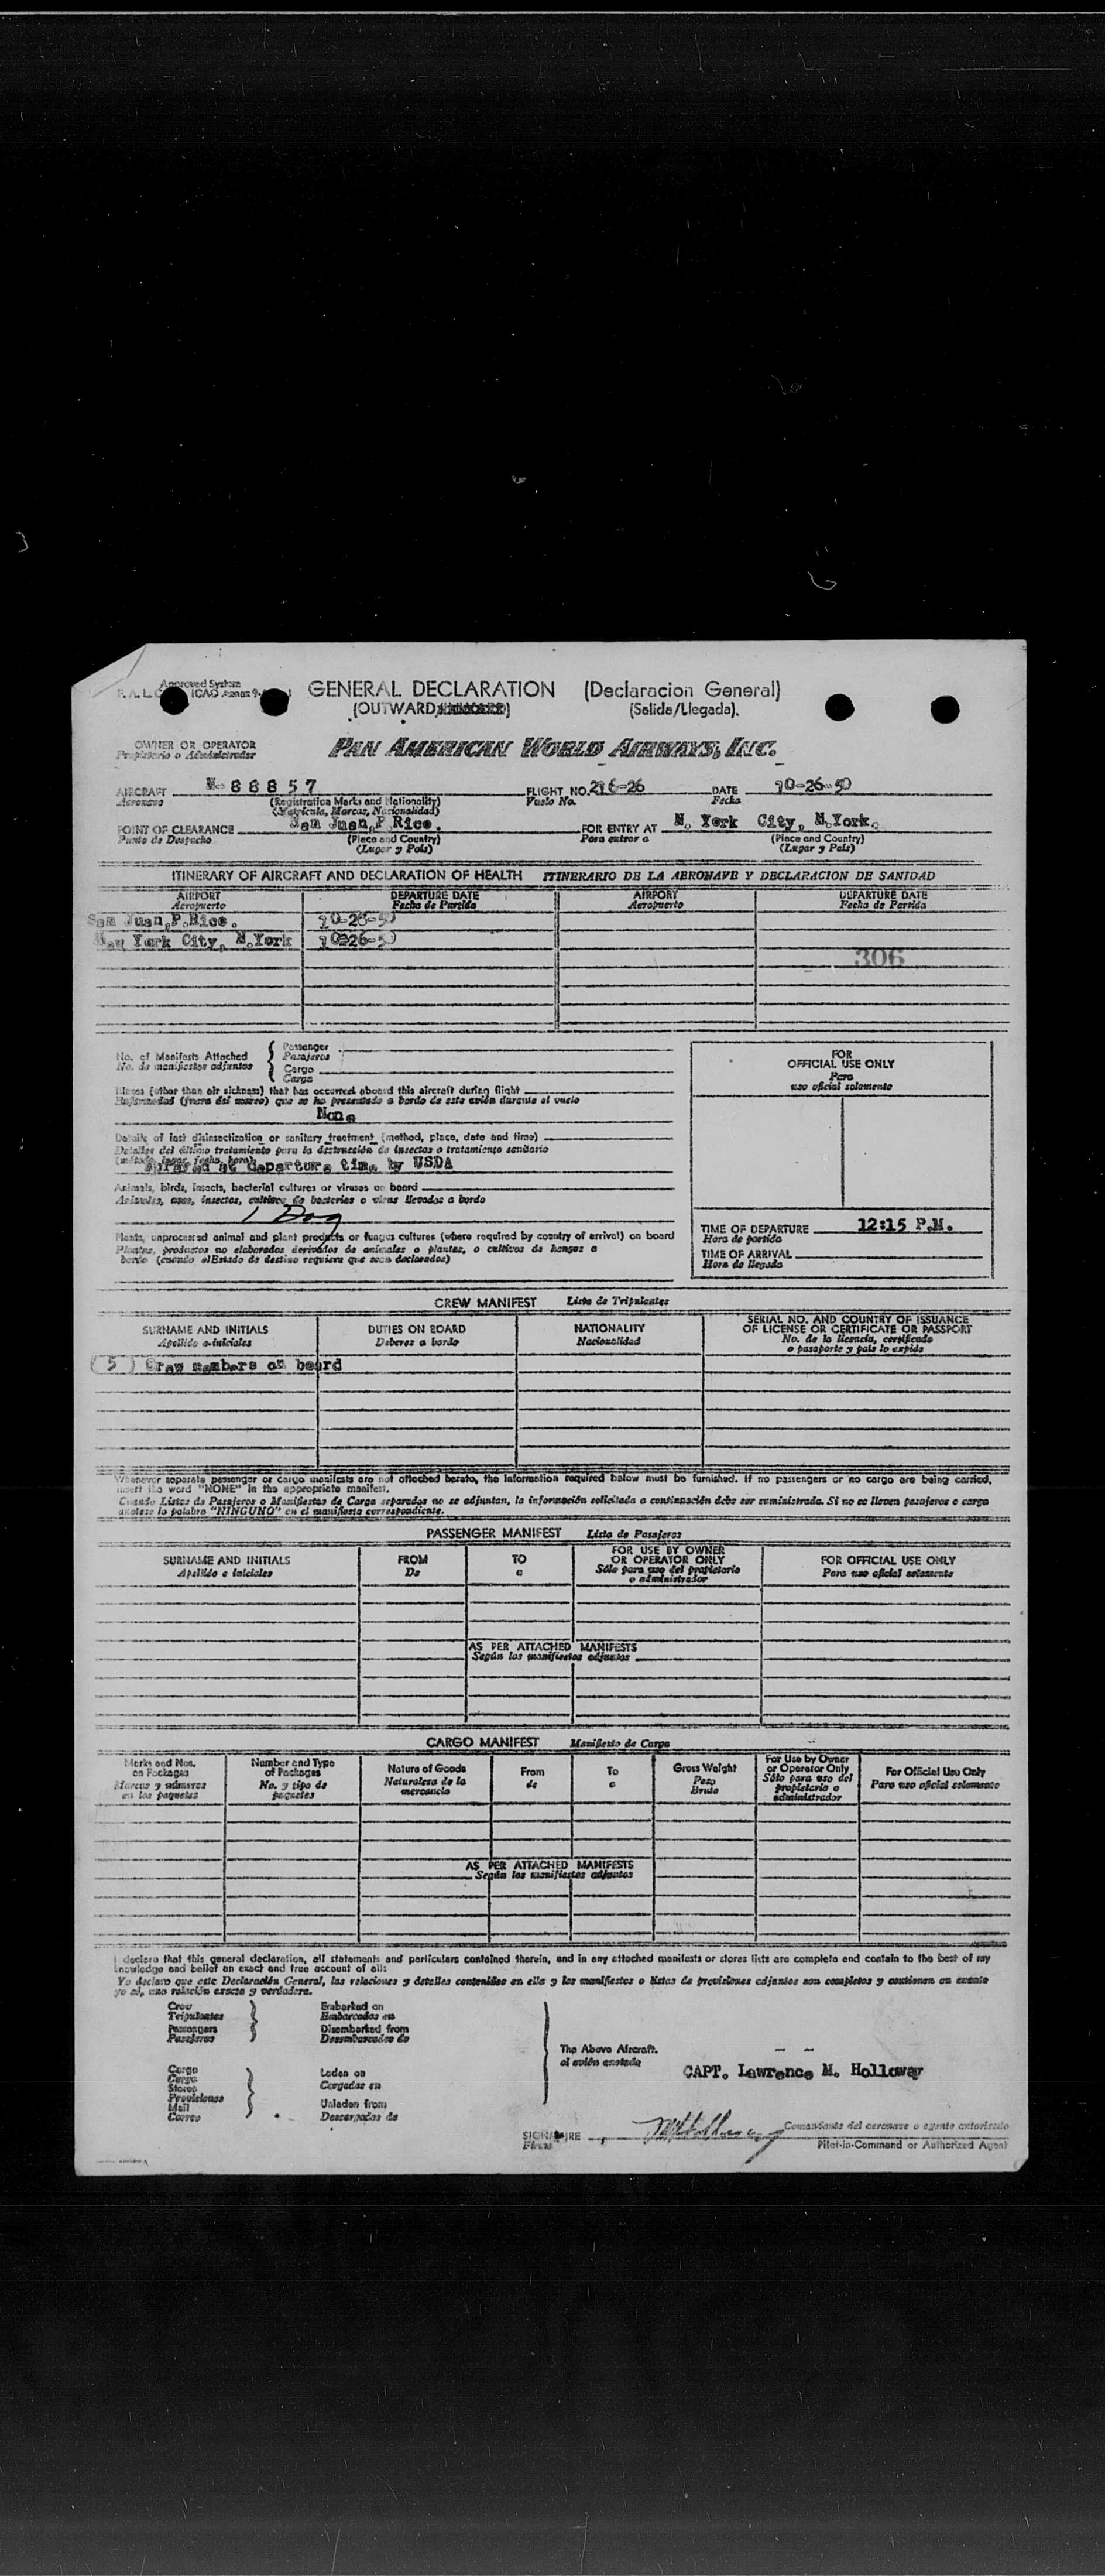 Approved System
F. A. L. ICAO Annex 9
GENERAL DECLARATION (Declaracion General)
(OUTWARD/INWARD) (Salida/Llegada).
OWNER OR OPERATOR
Propietario o Administrador
PAN AMERICAN WORLD AIRWAYS, INC.
AIRCRAFT N-88857 FLIGHT NO. 216-26 DATE 10-26-50
Aeronave (Registration Marks and Nationality) Vuelo No. Fecha
(Matricula, Marcas, Nacionalidad)
POINT OF CLEARANCE San Juan,P.Rico. FOR ENTRY AT N. York City, N.York.
Punto de Despacho (Place and Country) Para entrar a (Place and Country)
(Lugar y País) (Lugar y País)
ITINERARY OF AIRCRAFT AND DECLARATION OF HEALTH ITINERARIO DE LA AERONAVE Y DECLARACION DE SANIDAD
AIRPORT DEPARTURE DATE AIRPORT DEPARTURE DATE
Aeropuerto Fecha de Partida Aeropuerto Fecha de Partida
San Juan,P.Rico. 10-26-50
New York City, N.York 10-26-50
306
No. of Manifests Attached { Passenger
No. de manifiestos adjuntos Pasajeros
Cargo
Carga
Illness (other than air sickness) that has occurred aboard this aircraft during flight
Enfermedad (fuera del mareo) que se ha presentado a bordo de este avión durante el vuelo
None
Details of last disinsectization or sanitary treatment (method, place, date and time)
Detalles del último tratamiento para la destrucción de insectos o tratamiento sanitario
(método, lugar, fecha, hora)
Sprayed at departure time by USDA
Animals, birds, insects, bacterial cultures or viruses on board
Animales, aves, insectos, cultivos de bacterias o virus llevados a bordo
1 Dog
Plants, unprocessed animal and plant products or fungus cultures (where required by country of arrival) on board
Plantas, productos no elaborados derivados de animales o plantas, o cultivos de hongos a
bordo (cuando el Estado de destino requiera que sean declarados)
FOR
OFFICIAL USE ONLY
Para
uso oficial solamente
TIME OF DEPARTURE 12:15 P.M.
Hora de partida
TIME OF ARRIVAL
Hora de llegada
CREW MANIFEST Lista de Tripulantes
SURNAME AND INITIALS DUTIES ON BOARD NATIONALITY SERIAL NO. AND COUNTRY OF ISSUANCE
OF LICENSE OR CERTIFICATE OR PASSPORT
Apellido e iniciales Deberes a bordo Nacionalidad No. de la licencia, certificado
o pasaporte y país lo expide
( 5 ) Crew members on board
Whenever separate passenger or cargo manifests are not attached hereto, the information required below must be furnished. If no passengers or no cargo are being carried,
insert the word "NONE" in the appropriate manifest.
Cuando Listas de Pasajeros o Manifiestos de Carga separados no se adjuntan, la información solicitada a continuación debe ser suministrada. Si no se lleven pasajeros o carga
anótese la palabra "NINGUNO" en el manifiesto correspondiente.
PASSENGER MANIFEST Lista de Pasajeros
SURNAME AND INITIALS FROM TO FOR USE BY OWNER
OR OPERATOR ONLY FOR OFFICIAL USE ONLY
Apellido e iniciales De a Sólo para uso del propietario
o administrador Para uso oficial solamente
AS PER ATTACHED MANIFESTS
Según los manifiestos adjuntos
CARGO MANIFEST Manifiesto de Carga
Marks and Nos.
on Packages
Marcas y números
en los paquetes
Number and Type
of Packages
No. y tipo de
paquetes
Nature of Goods
Naturaleza de la
mercancía
From
de
To
a
Gross Weight
Peso
Bruto
For Use by Owner
or Operator Only
Sólo para uso del
propietario o
administrador
For Official Use Only
Para uso oficial solamente
AS PER ATTACHED MANIFESTS
Según los manifiestos adjuntos
I declare that this general declaration, all statements and particulars contained therein, and in any attached manifests or stores lists are complete and contain to the best of my
knowledge and belief an exact and true account of all:
Yo declaro que este Declaración General, las relaciones y detalles contenidos en ella y los manifiestos o listas de provisiones adjuntos son completos y contienen en cuanto
yo sé, una relación exacta y verdadera.
Crew Embarked on
Tripulantes Embarcados en
Passengers Disembarked from
Pasajeros Desembarcados de
The Above Aircraft.
el avión anotado
Cargo Laden on
Carga Cargados en
Stores
Provisiones Unladen from
Mail
Correo Descargados de
CAPT. Lawrence M. Holloway
SIGNATURE
Firma
Comandante del aeronave o agente autorizado
Pilot-in-Command or Authorized Agent